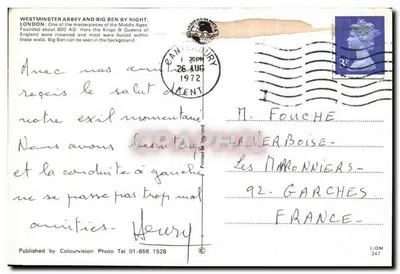 WESTMINSTER ABBEY AND BIG BEN BY NIGHT,
LONDON: One of the masterpieces of the Middle Ages.
Founded about 800 AD: Here the Kings & Queens of
England were crowned and most were buried within
these walls. Big Ben can be seen in the background.
CANTERBURY
1 30PM
26 AUG
1972
KENT
Avec nos
reçois le salut d
notre exil momentané
Nous avons beau
et la conduite à gauche
ne se passe pas trop mal
amitiés.
Henry
M. FOUCHE
LANERBOISE
Les MARONNIERS
92- GARCHES
FRANCE.
Published by Colourvision Photo Tel 01-658 1528
L/DM
247